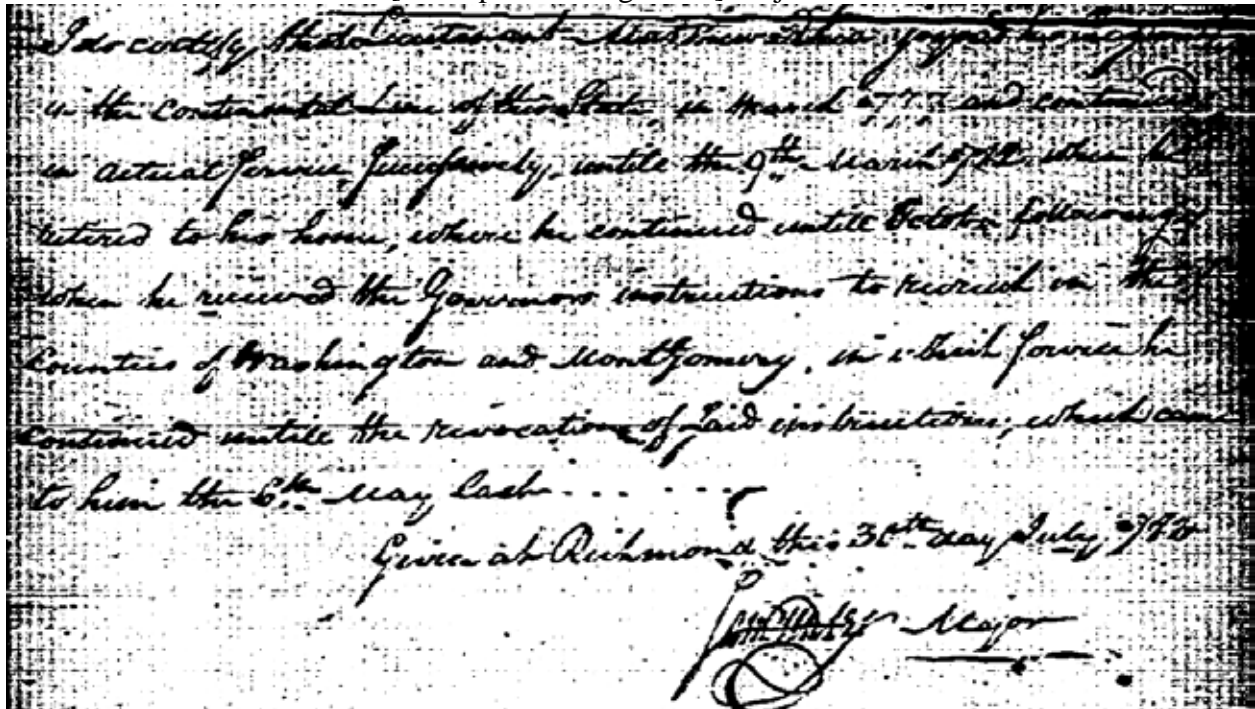 I do certify that Lieutenant Matthew Rhea joyned his Regiment
in the Continental Line of this State, in March 1777 and continued
in actual Service, Successively, untill the 9th March 1782, when he
retired to his home, where he continued untill October following
when he received the Governors instructions to recruit in the
Counties of Washington and Montgomery, in which service he
continued untill the revocation of said instructions, which came
to him the 6th May last
Given at Richmond this 30th day July 178
Major